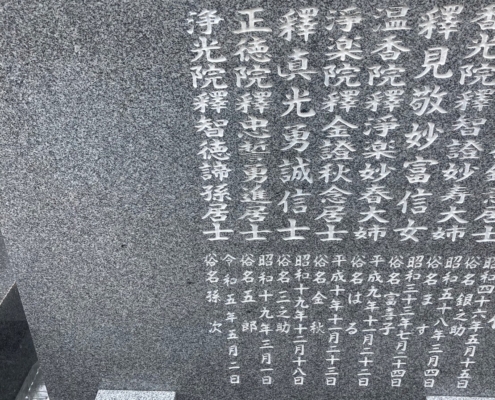 居士
昭和四十六年五月十五日
俗名 銀之助
香光院釋智證妙寿大姉
昭和五十八年三月四日
俗名 ます
釋見敬妙富信女
昭和三十三年七月二十四日
俗名 富喜子
温香院釋淨楽妙春大姉
平成九年十一月二十二日
俗名 はる
淨楽院釋金證秋念居士
平成十年十一月二十三日
俗名 金秋
釋真光勇誠信士
昭和十九年十二月十八日
俗名 二之助
正徳院釋忠誓勇進居士
昭和十九年三月一日
俗名 五郎
浄光院釋智徳諦孫居士
令和五年五月二日
俗名 孫次